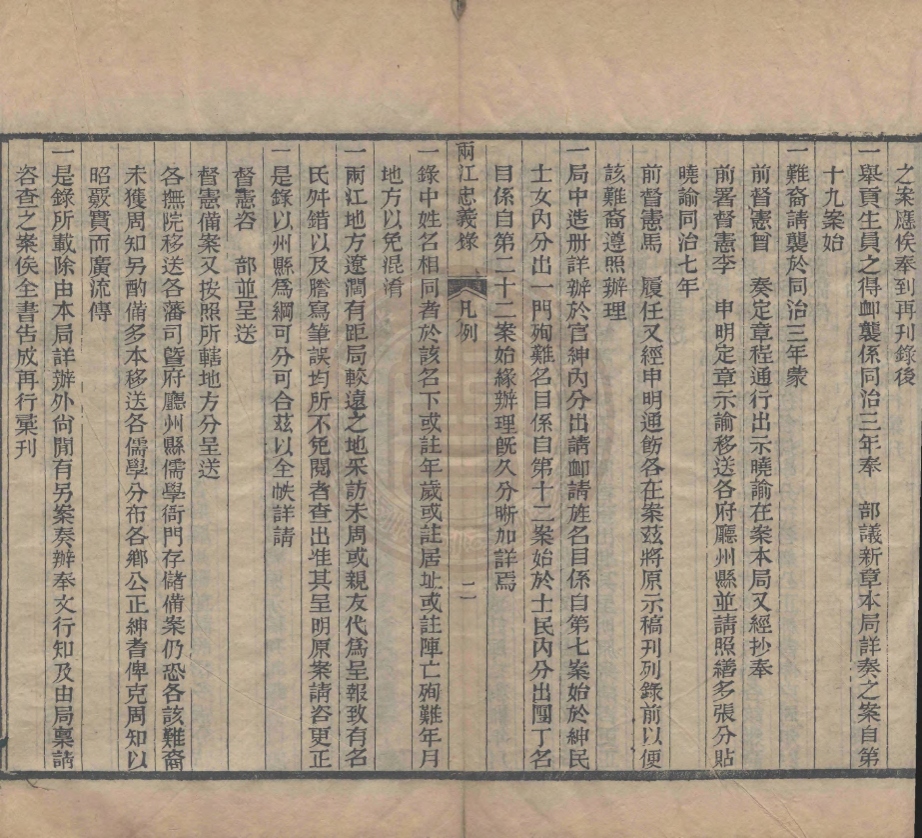 之案應俟奉到再刊錄後
一舉貢生員之得䘏襲係同治三年奉　部議新章本局詳奏之案自第
十九案始
一難裔請襲於同治三年蒙
前督憲曾　奏定章程通行出示曉諭在案本局又經抄奉
前署督憲李　申明定章示諭移送各府廳州縣並請照繕多張分貼
曉諭同治七年
前督憲馬　履任又經申明通飭各在案茲將原示稿刊列錄前以便
該難裔遵照辦理
一局中造册詳辦於官紳內分出請䘏請旌名目係自第七案始於紳民
士女內分出一門殉難名目係自第十二案始於士民內分出團丁名
目係自第二十二案始緣辦理旣久分晰加詳焉
兩江忠義錄　凡例　二
一錄中姓名相同者於該名下或註年歲或註居址或註陣亡殉難年月
地方以免混淆
一兩江地方遼濶有距局較遠之地采訪未周或親友代爲呈報致有名
氏舛錯以及謄寫筆誤均所不免閱者查出准其呈明原案請咨更正
一是錄以州縣爲綱可分可合茲以全帙詳請
督憲咨　部並呈送
督憲備案又按照所轄地方分呈送
各撫院移送各藩司暨府廳州縣儒學衙門存儲備案仍恐各該難裔
未獲周知另酌備多本移送各儒學分布各鄉公正紳耆俾克周知以
昭覈實而廣流傳
一是錄所載除由本局詳辦外尙間有另案奏辦奉文行知及由局稟請
咨查之案俟全書告成再行彙刊